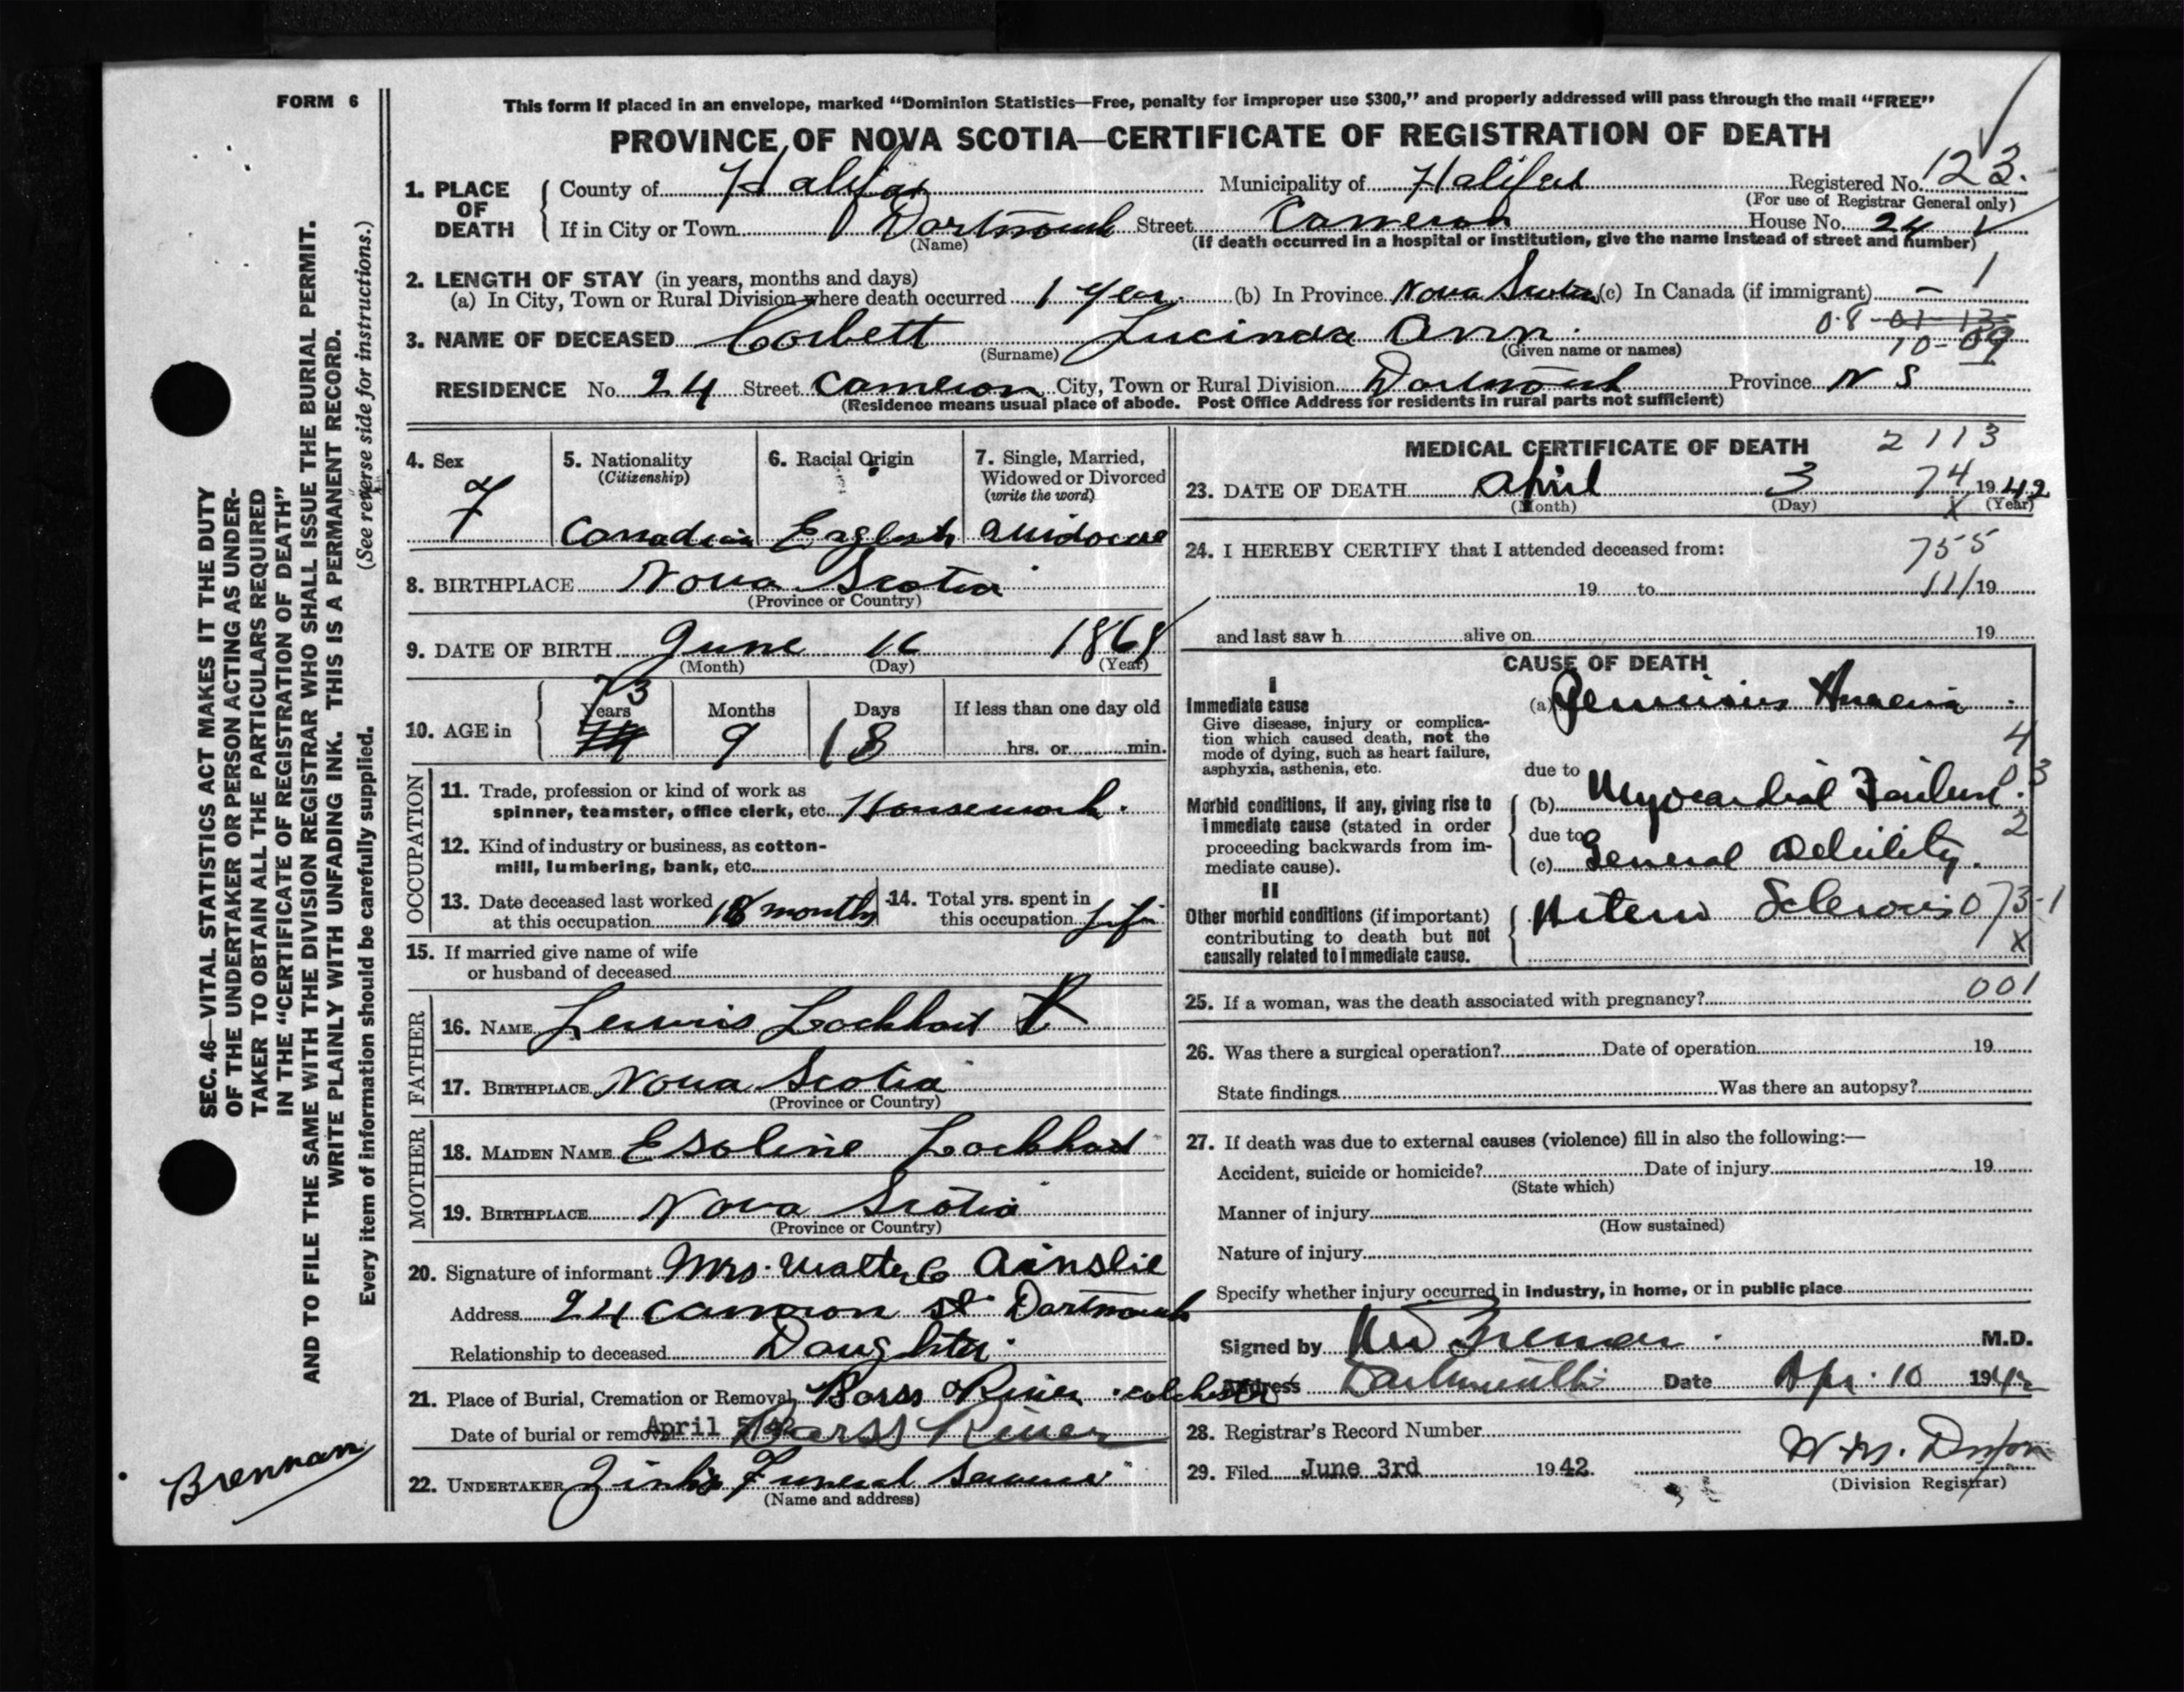 FORM 6
This form if placed in an envelope, marked "Dominion Statistics—Free, penalty for improper use $300," and properly addressed will pass through the mail "FREE"
PROVINCE OF NOVA SCOTIA—CERTIFICATE OF REGISTRATION OF DEATH
1. PLACE OF DEATH County of Halifax Municipality of Halifax Registered No. 123.
(For use of Registrar General only)
If in City or Town Dartmouth Street Cameron House No. 24
(Name) (If death occurred in a hospital or institution, give the name instead of street and number)
2. LENGTH OF STAY (in years, months and days)
(a) In City, Town or Rural Division where death occurred 1 year. (b) In Province Nova Scotia (c) In Canada (if immigrant) – 1
08 01-13
3. NAME OF DECEASED Corbett Lucinda Ann. 10-09
(Surname) (Given name or names)
RESIDENCE No. 24 Street Cameron City, Town or Rural Division Dartmouth Province N S
(Residence means usual place of abode. Post Office Address for residents in rural parts not sufficient)
4. Sex F
5. Nationality (Citizenship) Canadian
6. Racial Origin English
7. Single, Married, Widowed or Divorced (write the word) Widowed
8. BIRTHPLACE Nova Scotia
(Province or Country)
9. DATE OF BIRTH June 16 1868
(Month) (Day) (Year)
10. AGE in Years 73 Months 9 Days 18 If less than one day old
hrs. or min.
OCCUPATION
11. Trade, profession or kind of work as
spinner, teamster, office clerk, etc. Housework.
12. Kind of industry or business, as cotton-
mill, lumbering, bank, etc.
13. Date deceased last worked at this occupation 18 months
14. Total yrs. spent in this occupation Life
15. If married give name of wife
or husband of deceased
FATHER
16. NAME Lewis Lockhart
17. BIRTHPLACE Nova Scotia
(Province or Country)
MOTHER
18. MAIDEN NAME Esoline Lockhart
19. BIRTHPLACE Nova Scotia
(Province or Country)
20. Signature of informant Mrs. Walter C Ainslie
Address 24 Cameron St. Dartmouth
Relationship to deceased Daughter
21. Place of Burial, Cremation or Removal Bass River. Colchester
Date of burial or removal April 5/42 Bass River
22. UNDERTAKER Zink's Funeral Service
(Name and address)
MEDICAL CERTIFICATE OF DEATH 2113
23. DATE OF DEATH April 3 74 1942
(Month) (Day) (Year)
X
24. I HEREBY CERTIFY that I attended deceased from: 755
19 to 111 19
and last saw h alive on 19
CAUSE OF DEATH
I
Immediate cause
Give disease, injury or complica-
tion which caused death, not the
mode of dying, such as heart failure,
asphyxia, asthenia, etc.
(a) Pernicious Anaemia
4
due to
Morbid conditions, if any, giving rise to
immediate cause (stated in order
proceeding backwards from im-
mediate cause).
(b) Myocardial Failure. 03
due to 2
(c) General Debility.
II
Other morbid conditions (if important)
contributing to death but not
causally related to immediate cause.
Arterio Sclerosis 073-1
X
25. If a woman, was the death associated with pregnancy? 001
26. Was there a surgical operation? Date of operation 19
State findings Was there an autopsy?
27. If death was due to external causes (violence) fill in also the following:—
Accident, suicide or homicide? Date of injury 19
(State which)
Manner of injury
(How sustained)
Nature of injury
Specify whether injury occurred in industry, in home, or in public place
Signed by M.D.
Address Dartmouth Date Apr. 10 1942
28. Registrar's Record Number
29. Filed June 3rd 1942.
(Division Registrar)
SEC. 46—VITAL STATISTICS ACT MAKES IT THE DUTY
OF THE UNDERTAKER OR PERSON ACTING AS UNDER-
TAKER TO OBTAIN ALL THE PARTICULARS REQUIRED
IN THE "CERTIFICATE OF REGISTRATION OF DEATH"
AND TO FILE THE SAME WITH THE DIVISION REGISTRAR WHO SHALL ISSUE THE BURIAL PERMIT.
WRITE PLAINLY WITH UNFADING INK. THIS IS A PERMANENT RECORD.
Every item of information should be carefully supplied. (See reverse side for instructions.)
Brennan